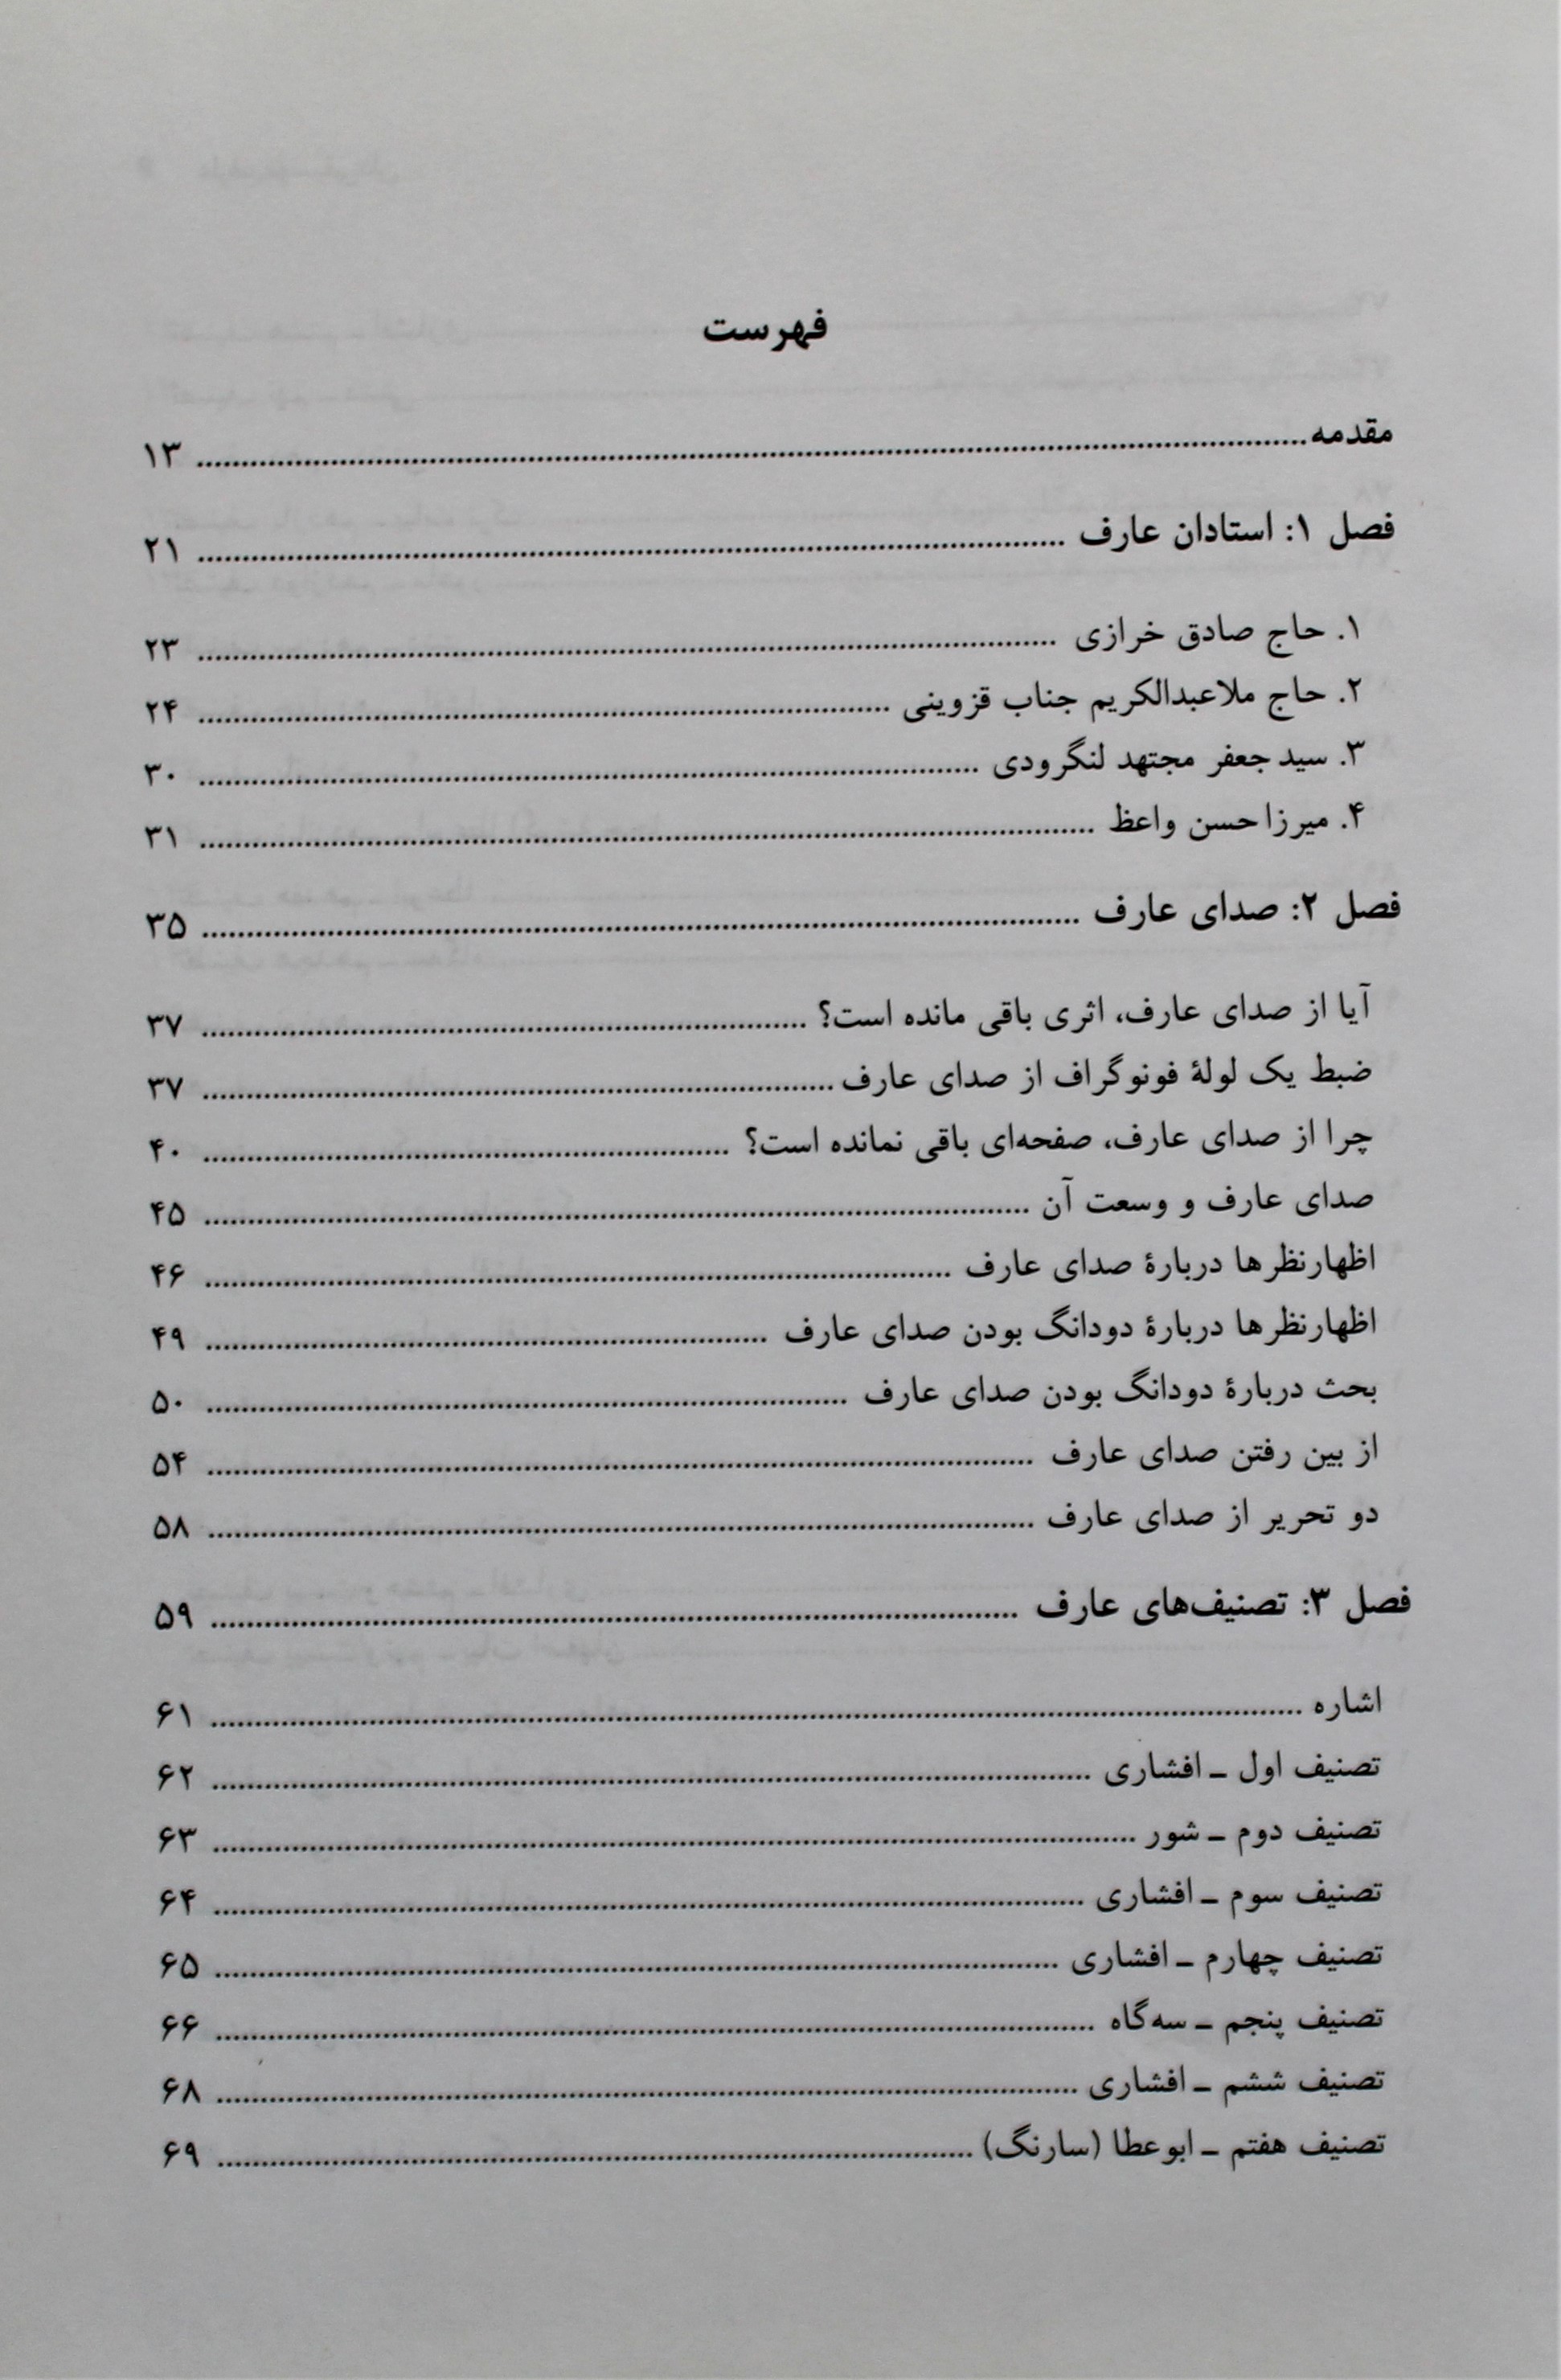 فهرست
مقدمه ........ ۱۳
فصل ۱: استادان عارف ........ ۲۱
۱. حاج صادق خرازی ........ ۲۳
۲. حاج ملاعبدالکریم جناب قزوینی ........ ۲۴
۳. سید جعفر مجتهد لنگرودی ........ ۳۰
۴. میرزا حسن واعظ ........ ۳۱
فصل ۲: صدای عارف ........ ۳۵
آیا از صدای عارف، اثری باقی مانده است؟ ........ ۳۷
ضبط یک لولهٔ فونوگراف از صدای عارف ........ ۳۷
چرا از صدای عارف، صفحه‌ای باقی نمانده است؟ ........ ۴۰
صدای عارف و وسعت آن ........ ۴۵
اظهارنظرها دربارهٔ صدای عارف ........ ۴۶
اظهارنظرها دربارهٔ دودانگ بودن صدای عارف ........ ۴۹
بحث دربارهٔ دودانگ بودن صدای عارف ........ ۵۰
از بین رفتن صدای عارف ........ ۵۴
دو تحریر از صدای عارف ........ ۵۸
فصل ۳: تصنیف‌های عارف ........ ۵۹
اشاره ........ ۶۱
تصنیف اول ـ افشاری ........ ۶۲
تصنیف دوم ـ شور ........ ۶۳
تصنیف سوم ـ افشاری ........ ۶۴
تصنیف چهارم ـ افشاری ........ ۶۵
تصنیف پنجم ـ سه‌گاه ........ ۶۶
تصنیف ششم ـ افشاری ........ ۶۸
تصنیف هفتم ـ ابوعطا (سارنگ) ........ ۶۹